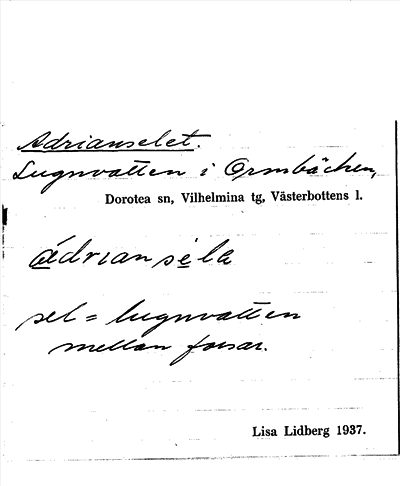 Adrianselet.
Lugnvatten i Ormbäcken,
Dorotea sn, Vilhelmina tg, Västerbottens l.
ádrian sela
sel = lugnvatten
mellan forsar.
Lisa Lidberg 1937.